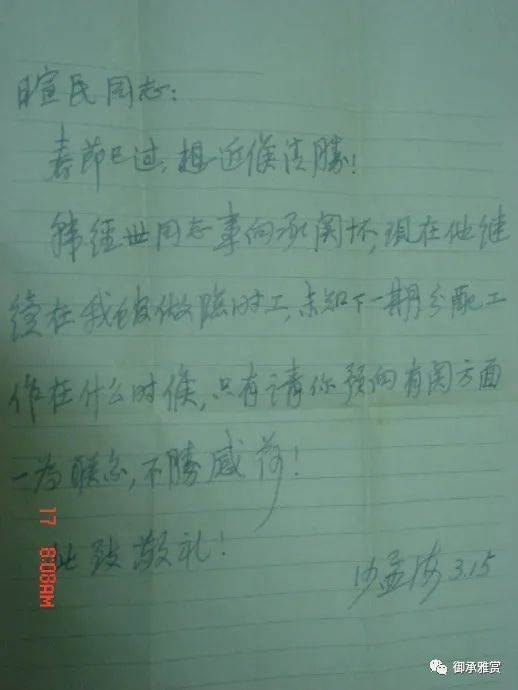 暄民同志：
春节已过，想近候清勝！
韩经世同志事向承関怀，現在他继
续在我校做臨时工，未知下一期分配工
作在什么时候，只有请你预向有関方面
一为联系，不勝感荷！
此致敬礼！
沙孟海 3.15
17 8:08AM
御承雅赏